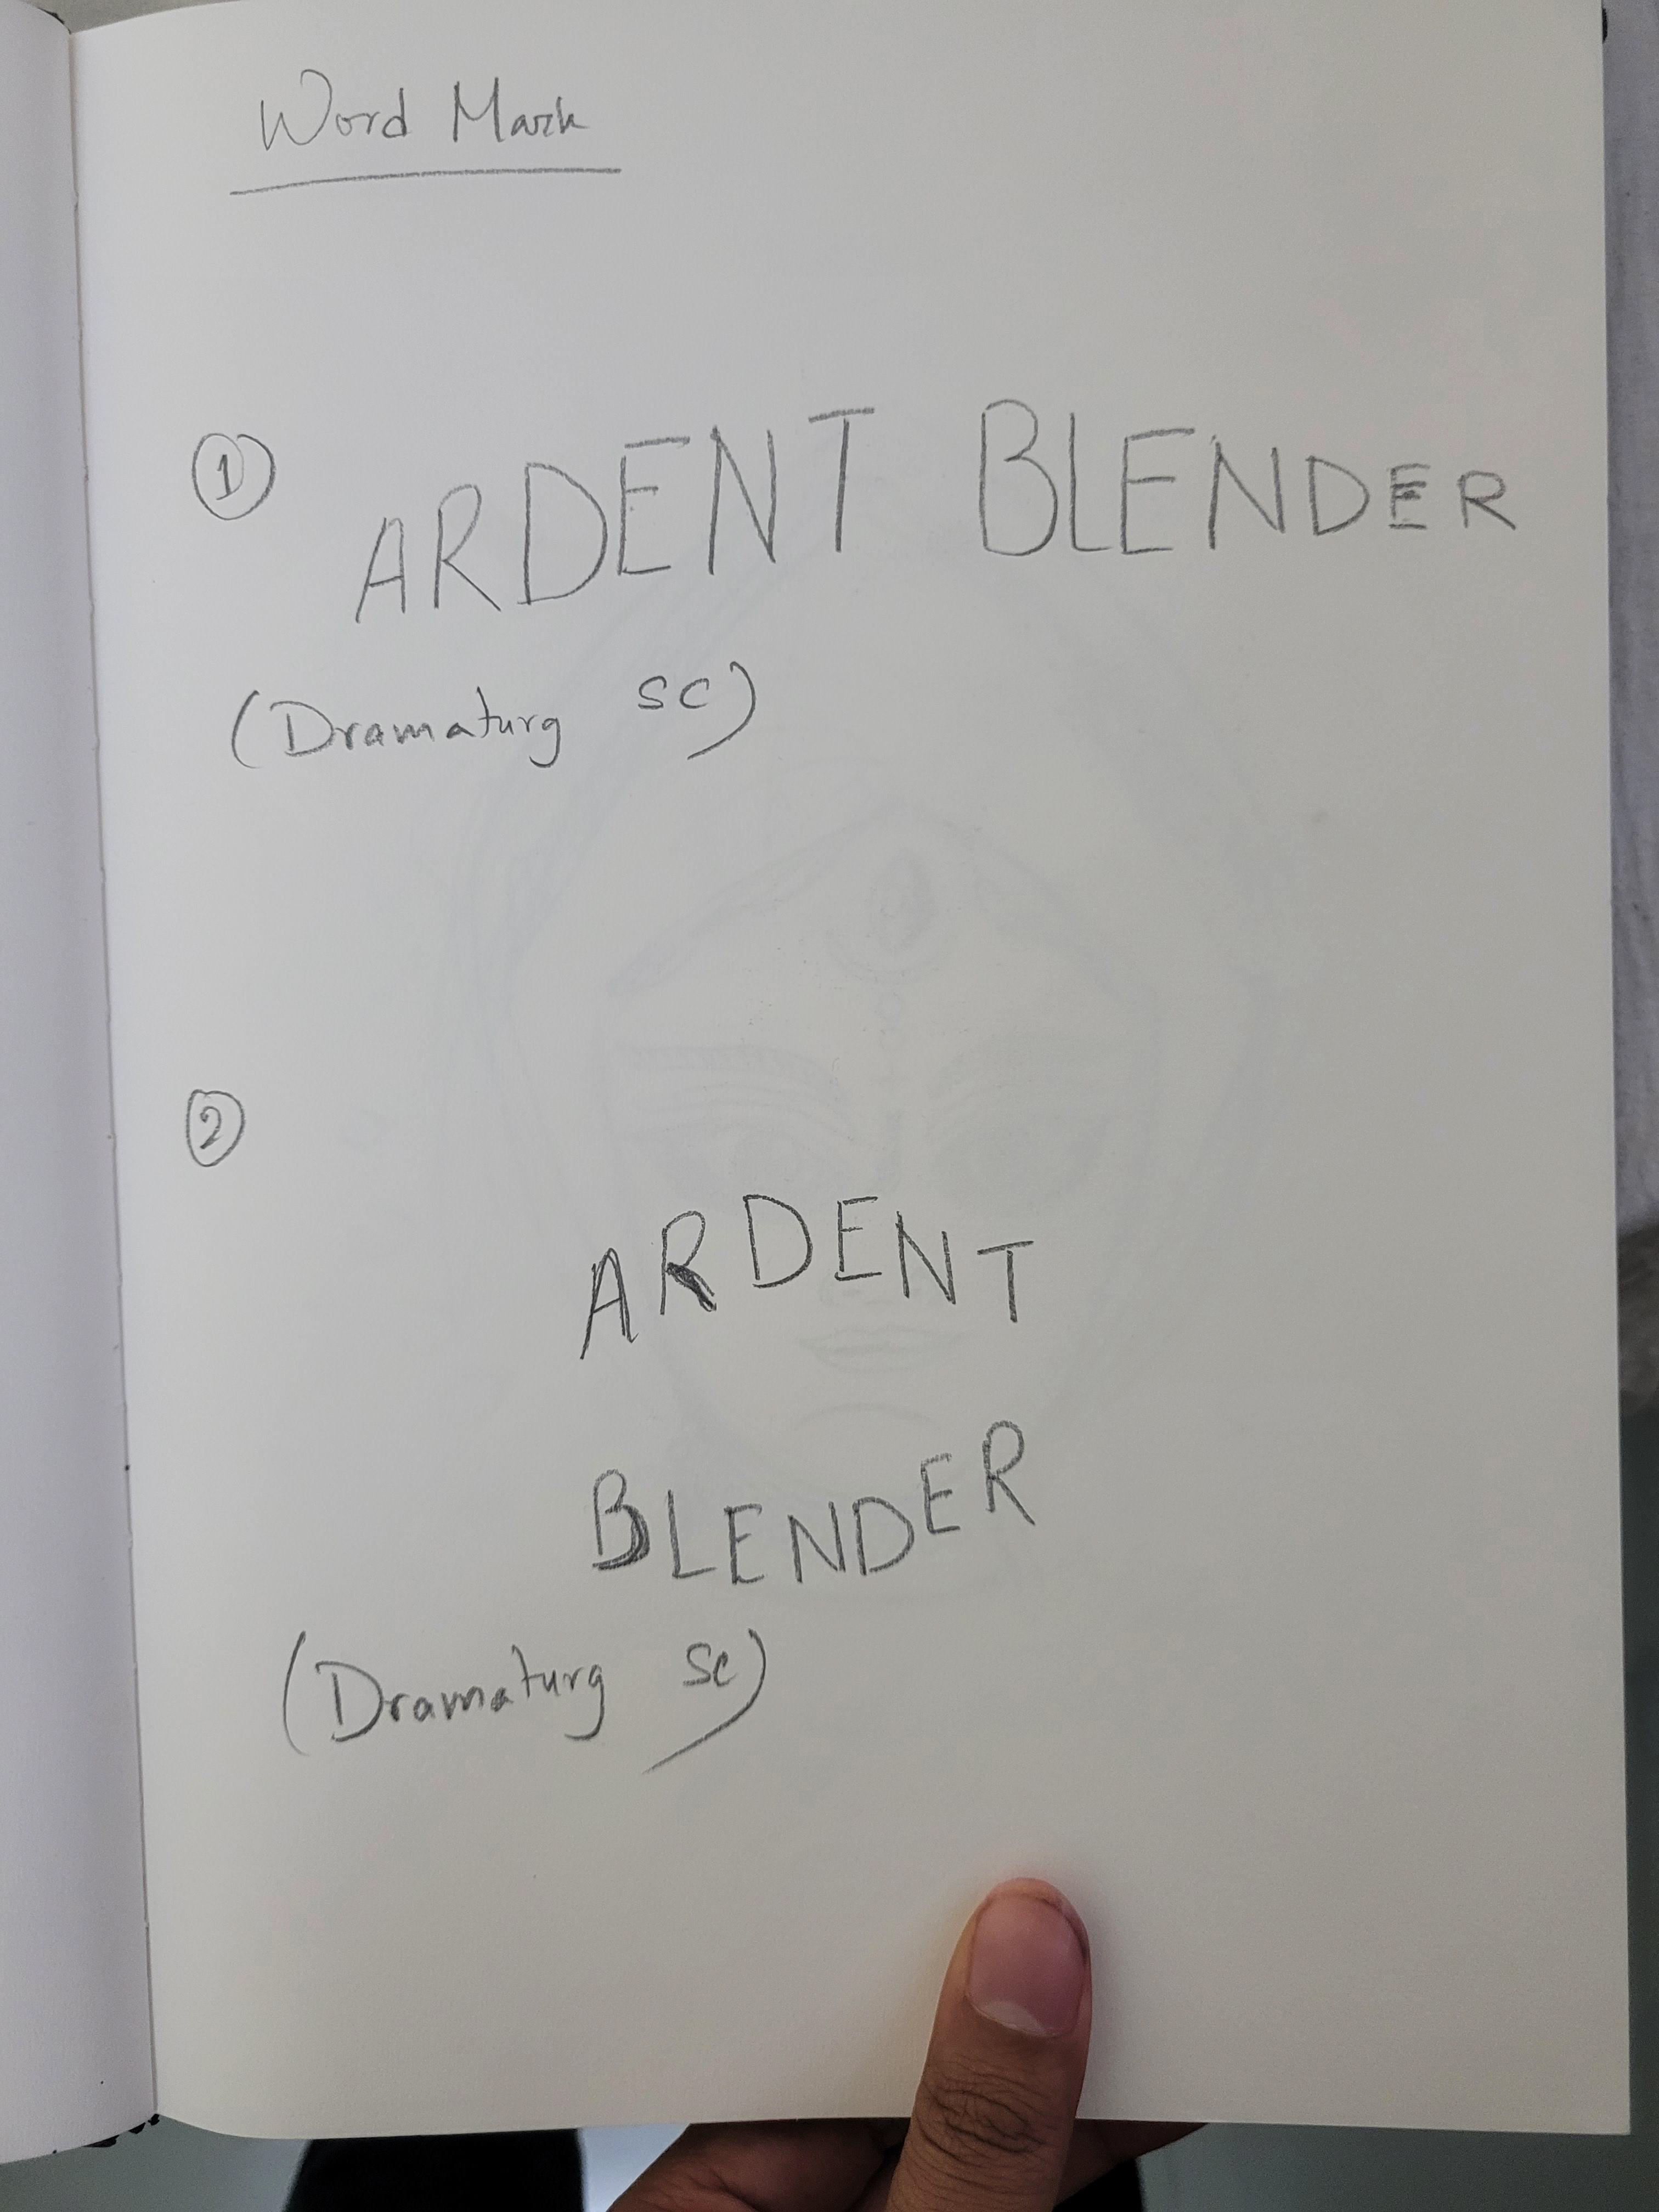 Word Mark
1
ARDENT BLENDER
(Dramaturg SC)
2
ARDENT
BLENDER
(Dramaturg SC)